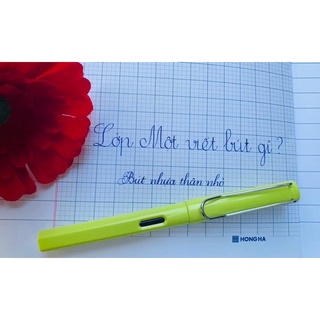 Lớp Một viết bút gì?
Bút nhựa thân nhỏ
HONG HA